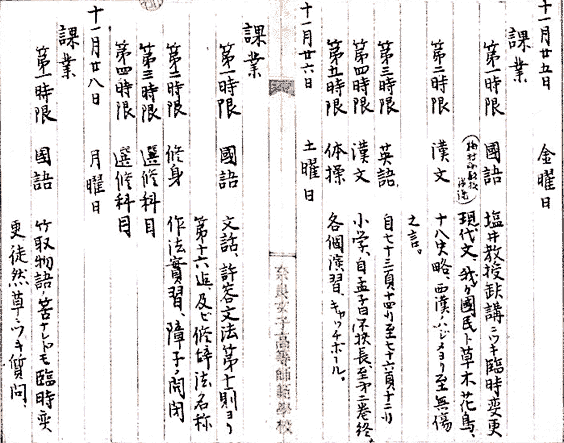 十一月廿五日　金曜日
課業
第一時限　國語　塩井教授缺講ニツキ臨時変更
現代文、我ガ國民ト草木花鳥、
第二時限　漢文　十八史略、西漢ノハジメヨリ至無傷
之言。
第三時限　英語　自七十三頁十四り至七十六頁十二り
第四時限　漢文　小学、自孟子曰不挾長至第二巻終。
第五時限　体操　各個演習、キャッチボール。
十一月廿六日　土曜日
課業
第一時限　國語　文話、許容文法第十一則ヨリ
第十六迄及ビ修辞法名称
第二時限　修身　作法實習、障子ノ開閉
第三時限　選修科目
第四時限　選修科目
十一月廿八日　月曜日
課業
第一時限　國語　竹取物語ノ筈ナレドモ臨時変
更徒然草ニツキ質問、
奈良女子高等師範學校